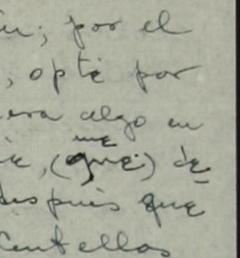 ; por el
, opté por
era algo en
me
, (que) de
después que
Centellas